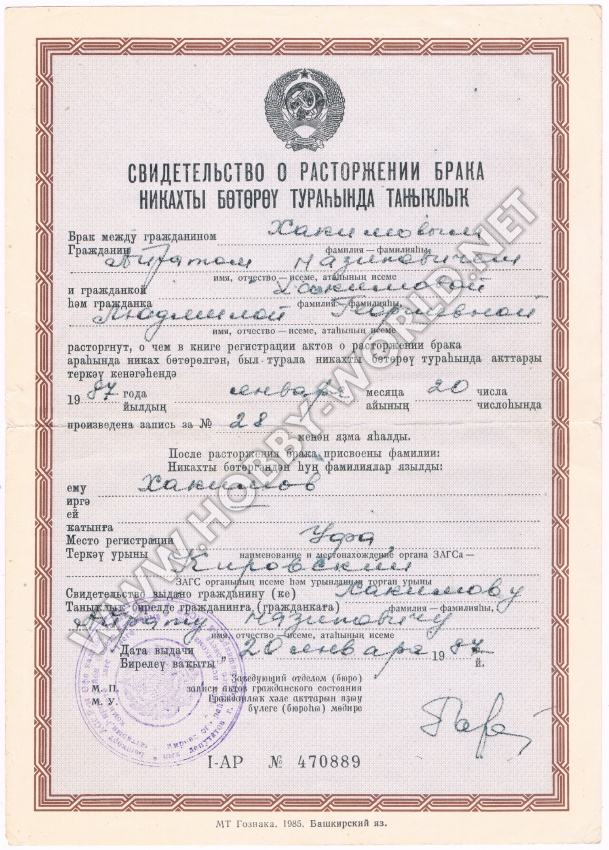 СВИДЕТЕЛЬСТВО О РАСТОРЖЕНИИ БРАКА
НИКАХТЫ БӨТӨРӨҮ ТУРАҺЫНДА ТАНЫҠЛЫҠ
Брак между гражданином Хакимовым
Гражданин фамилия — фамилияһы
Айратом Назиповичем
имя, отчество — исеме, атаһының исеме
и гражданкой Хакимовой
һәм гражданка фамилия — фамилияһы,
Людмилой Георгиевной
имя, отчество — исеме, атаһының исеме
расторгнут, о чем в книге регистрации актов о расторжении брака
араһында никах бөтөрөлгән, был турала никахты бөтөрөү тураһында акттарҙы
теркәү кенәгәһендә
19 87 года январь месяца 20 числа
йылдың айының числоһында
произведена запись за № 28
менән яҙма яһалды.
После расторжения брака присвоены фамилии:
Никахты бөтөргәндән һуң фамилиялар яҙылды:
ему Хакимов
иргә
ей —
ҡатынға
Место регистрации Уфа
Теркәү урыны наименование и местонахождение органа ЗАГСа —
Кировский
ЗАГС органының исеме һәм урынлашҡан урыны
Свидетельство выдано гражданину (ке) Хакимову
Танытҡлыҡ бирелде гражданинға, (гражданкаға) фамилия — фамилияһы,
Айрату Назиповичу
имя, отчество — исеме, атаһының исеме
Дата выдачи 20 января 19 87 г.
Бирелеү ваҡыты й.
Заведующий отделом (бюро)
М. П. записи актов гражданского состояния
М. У. Гражданлыҡ хәле акттарын яҙыу
бүлеге (бюроһо) мөдире
I-АР № 470889
МТ Гознака. 1985. Башкирский яз.
WWW.HOBBY-WORLD.NET